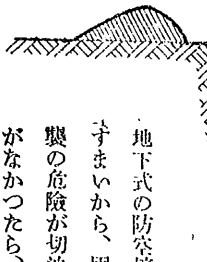 地下式の防空
すまいから、
製の危險が切
がなかつたら、